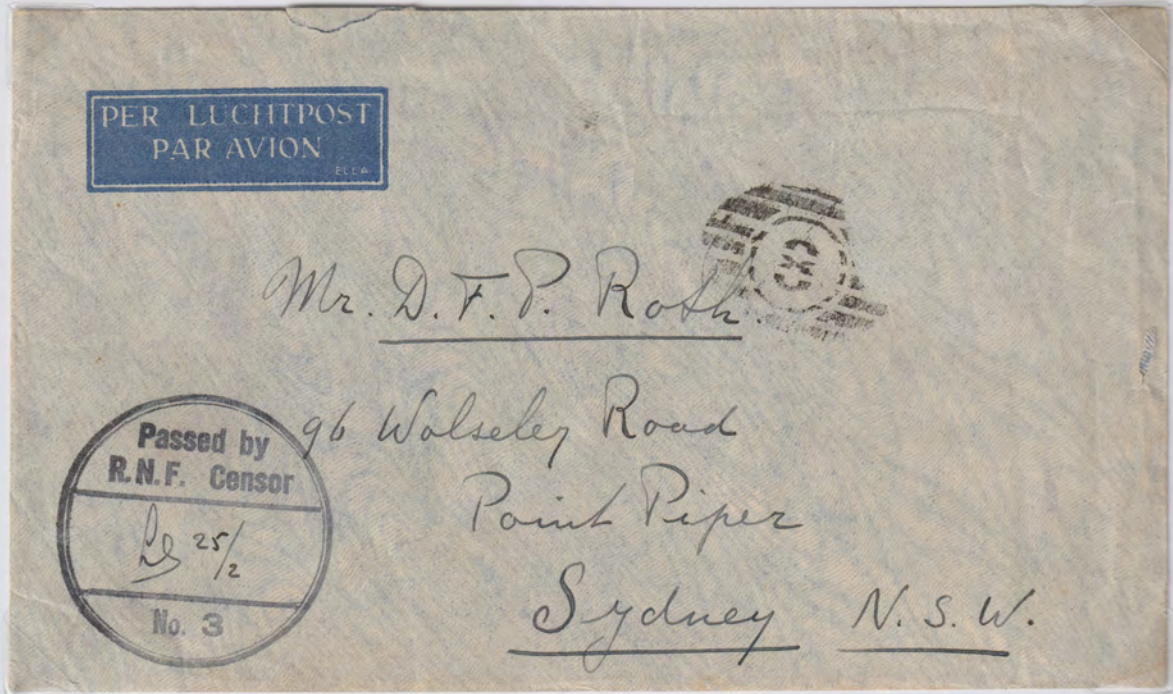 PER LUCHTPOST
PAR AVION
ELCA
Mr. D. F. P. Roth
96 Wolseley Road
Point Piper
Sydney N. S. W.
Passed by
R.N.F. Censor
25/2
No. 3